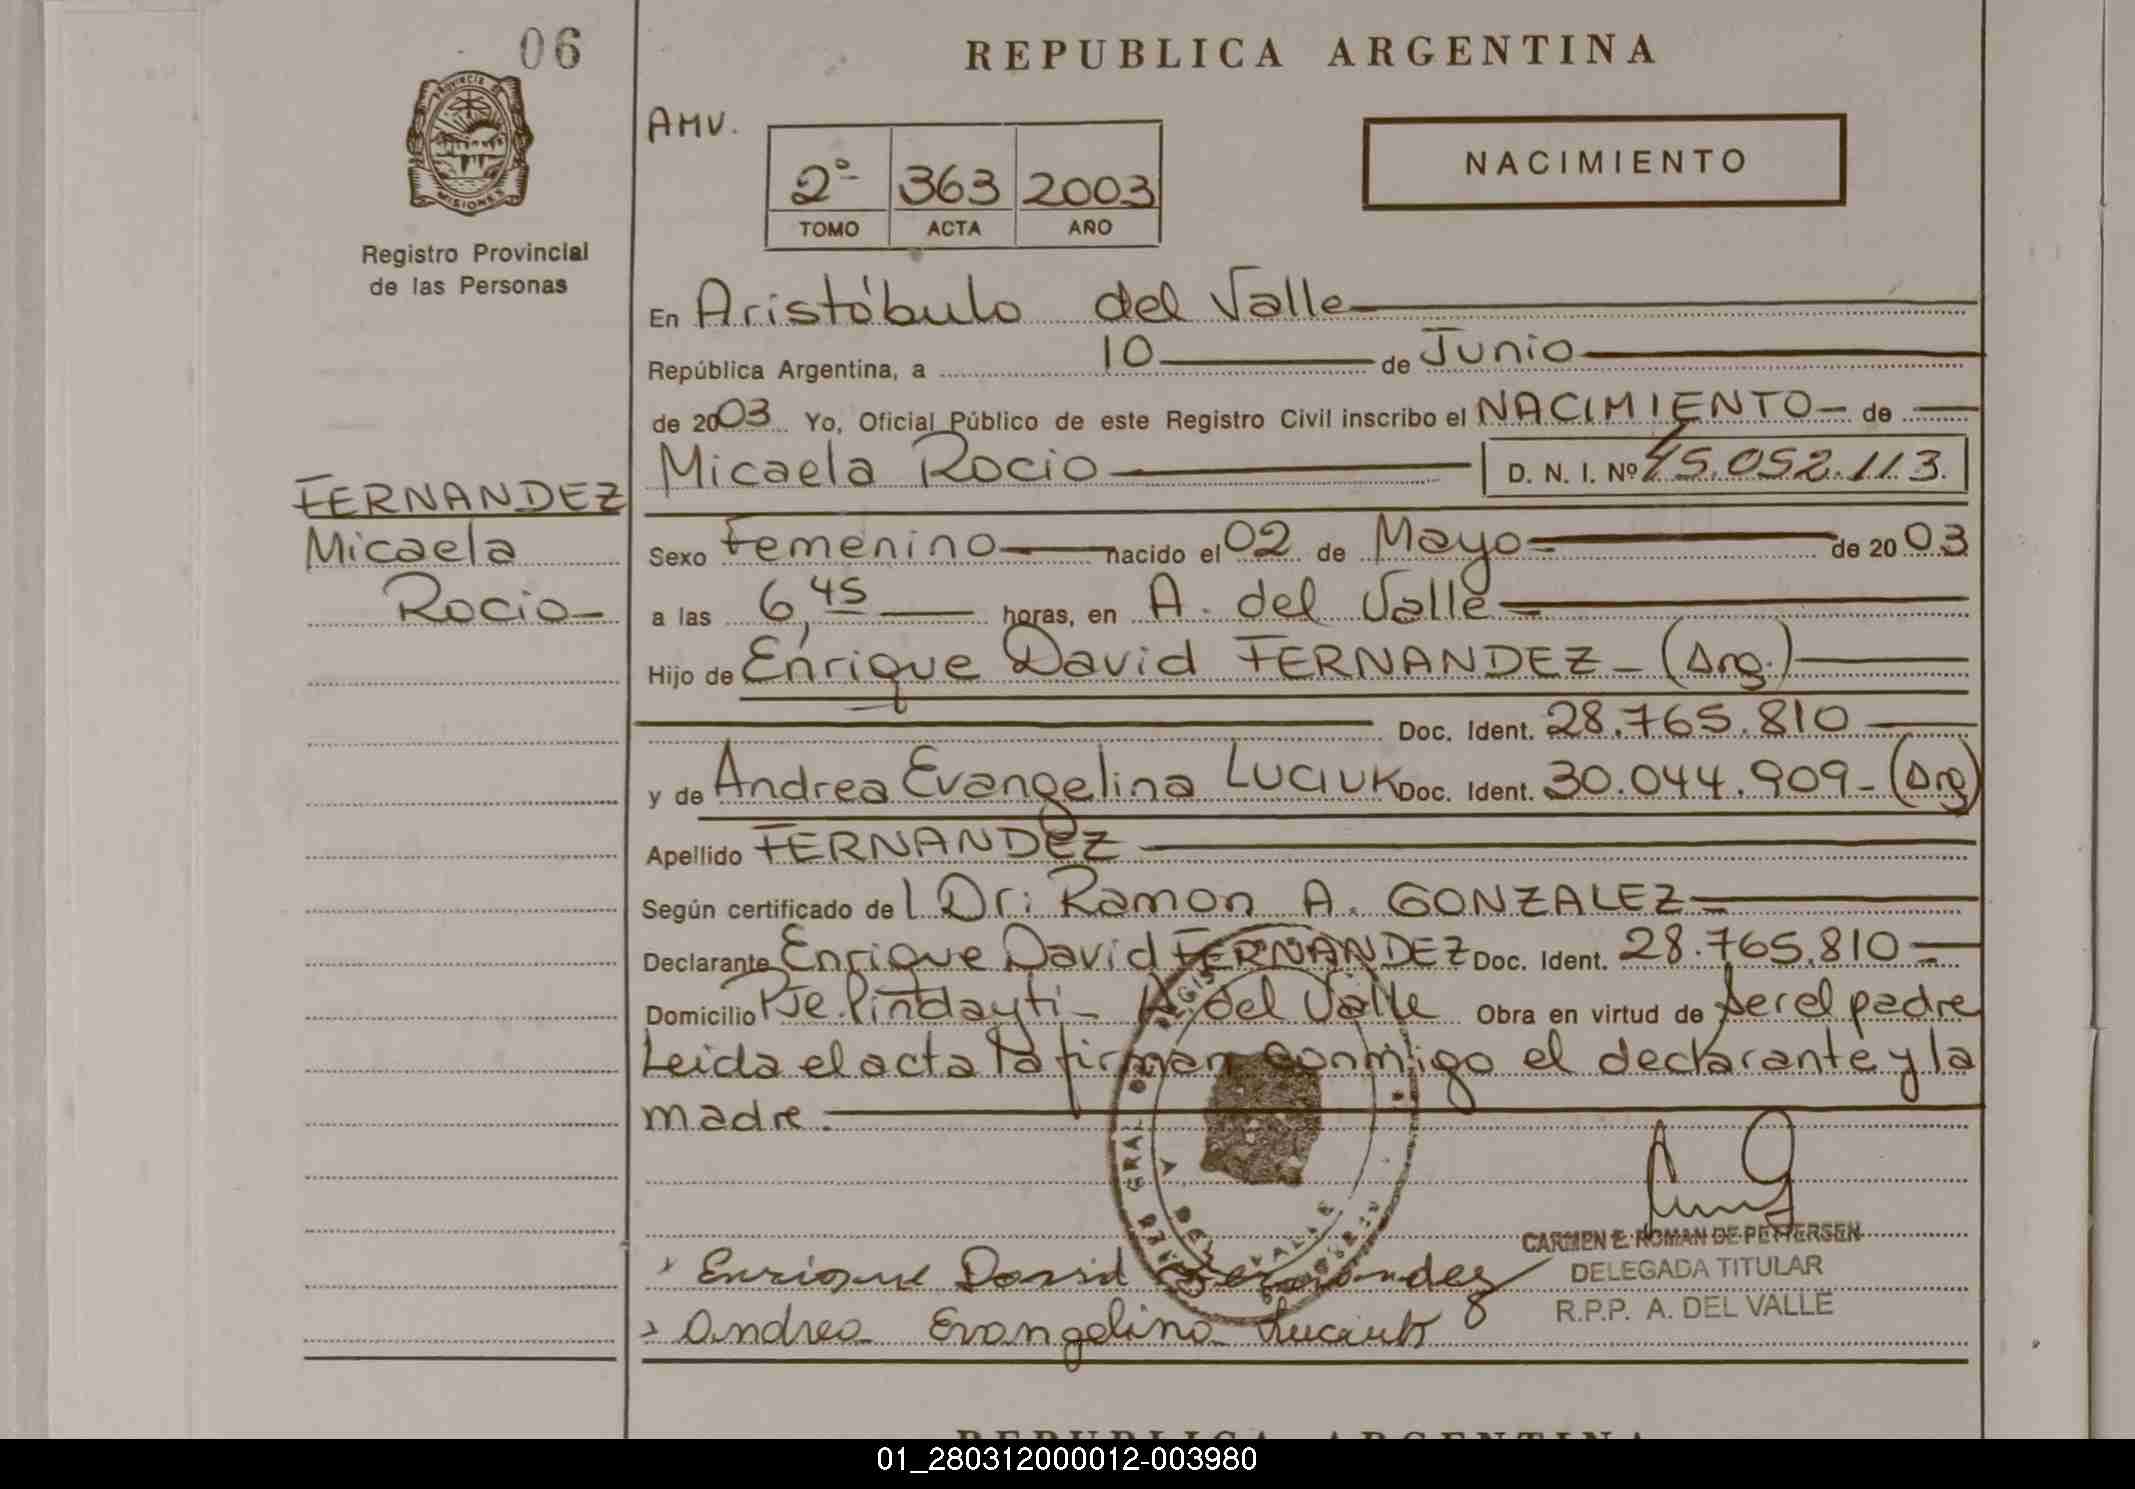 06
REPUBLICA ARGENTINA
AMV.
2º 363 2003
TOMO ACTA AÑO
NACIMIENTO
PROVINCIA DE
MISIONES
Registro Provincial
de las Personas
En Aristóbulo del Valle
República Argentina, a 10 de Junio
de 2003 Yo, Oficial Público de este Registro Civil inscribo el NACIMIENTO de
Micaela Rocio D. N. I. Nº 45.052.113.
FERNANDEZ
Micaela
Rocio
Sexo Femenino nacido el 02 de Mayo de 2003
a las 6,45 horas, en A. del Valle
Hijo de Enrique David FERNANDEZ - (Arg.)
Doc. Ident. 28.765.810
y de Andrea Evangelina LUCIUK Doc. Ident. 30.044.909 - (Arg)
Apellido FERNANDEZ
Según certificado del Dr: Ramon A. GONZALEZ
Declarante Enrique David FERNANDEZ Doc. Ident. 28.765.810
Domicilio Pje. Pindayti - A. del Valle Obra en virtud de ser el padre
Leida el acta la firman conmigo el declarante y la
madre.
Enrique David Fernandez
Andrea Evangelina Luciuk
CARMEN E. ROMAN DE PETTERSEN
DELEGADA TITULAR
R.P.P. A. DEL VALLE
REPUBLICA ARGENTINA
01_280312000012-003980